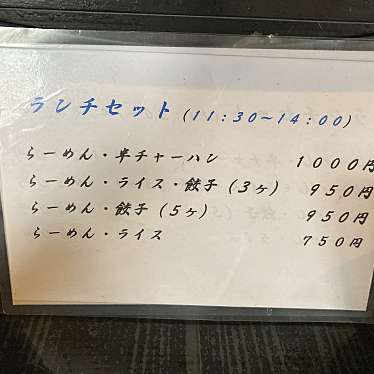 ランチセット (11:30～14:00)
らーめん・半チャーハン 1000円
らーめん・ライス・餃子(3ヶ) 950円
らーめん・餃子(5ヶ) 950円
らーめん・ライス 750円